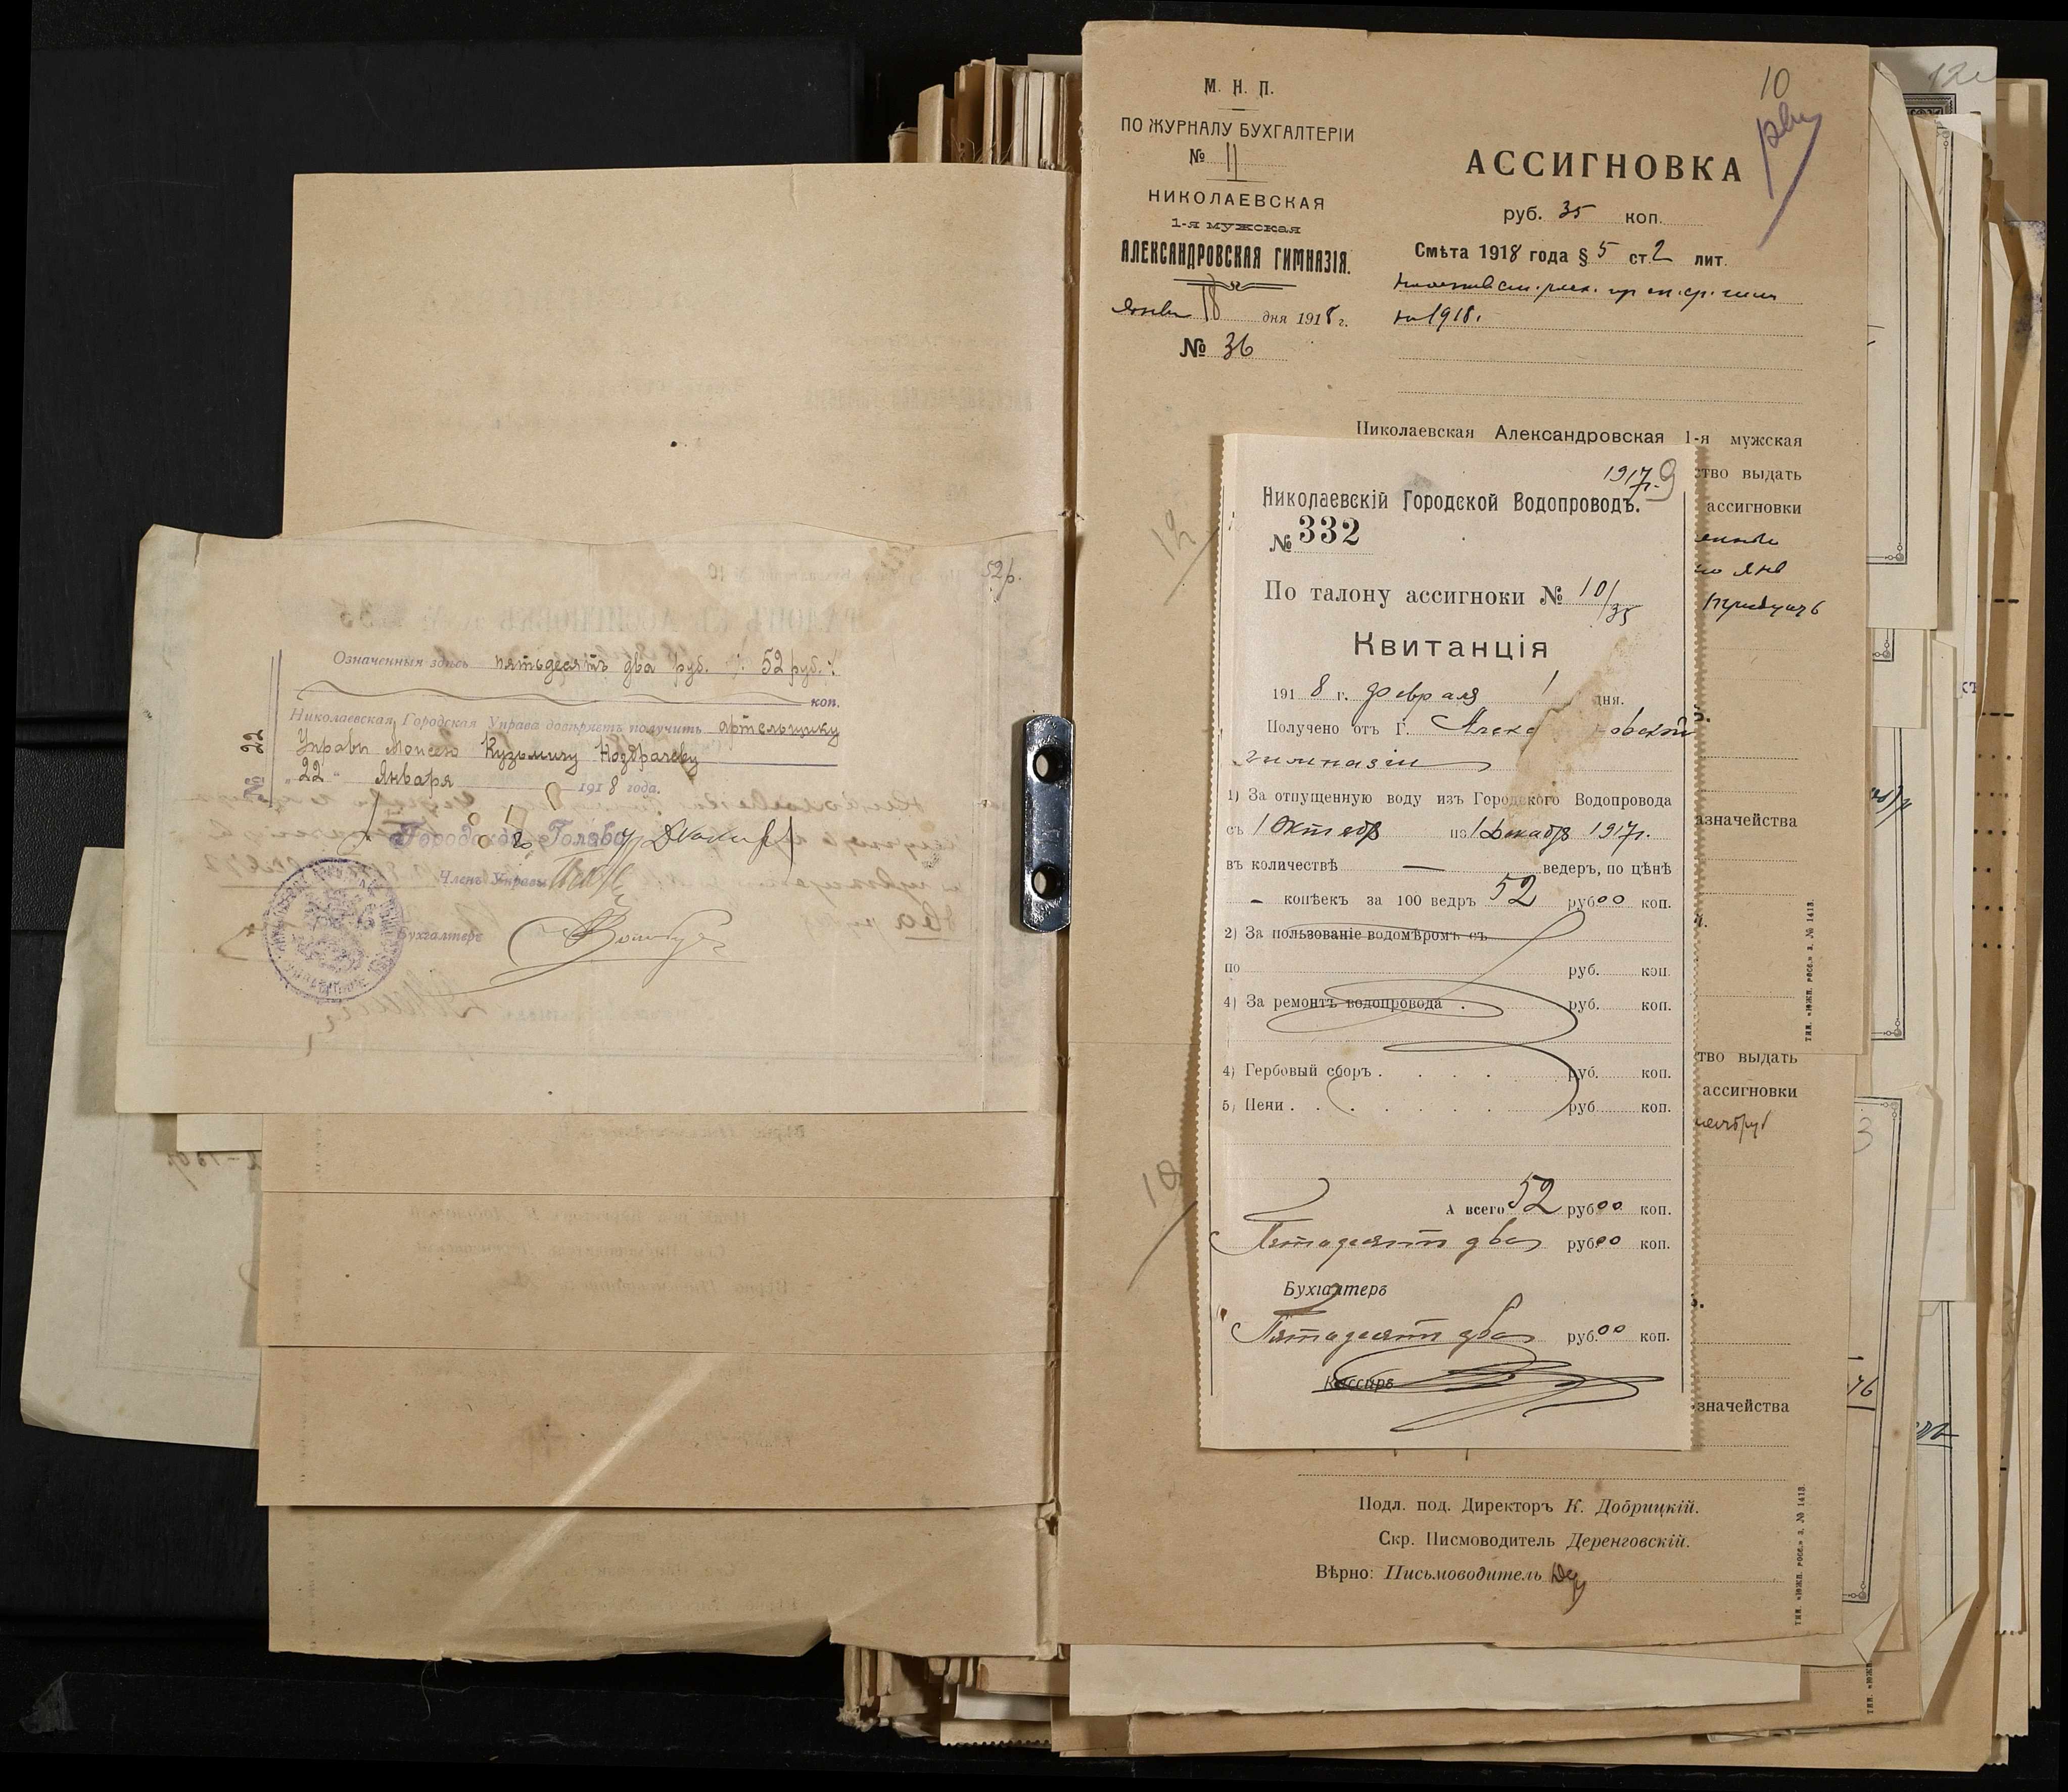 52 р.
Означенныя здѣсь пятьдесятъ два руб. 52 руб.
коп.
Николаевская Городская Управа довѣряетъ получить артельщику
Управы Моисею Кузьмичу Ноздрачеву
"22" Января 1918 года.
№ 22
Городской Голова
Членъ Управы
Бухгалтеръ
М. Н. П.
ПО ЖУРНАЛУ БУХГАЛТЕРІИ
№ 11
НИКОЛАЕВСКАЯ
1-я мужская
АЛЕКСАНДРОВСКАЯ ГИМНАЗІЯ.
18 дня 1918 г.
№ 36
10
АССИГНОВКА
руб. 35 коп.
Смѣта 1918 года § 5 ст. 2 лит.
на 1918.
Николаевская Александровская 1-я мужская
ство выдать
ассигновки
12
1917 г. 9
Николаевскій Городской Водопроводъ.
№ 332
По талону ассигноки № 10/35
Квитанція
1918 г. февраля 1 дня.
Получено отъ Г.
гимназіи
1) За отпущенную воду изъ Городского Водопровода
съ 1 Октября по 1 Декабря 1917 г.
въ количествѣ — ведеръ, по цѣнѣ
— копѣекъ за 100 ведръ 52 руб 00 коп.
2) За пользованіе водомѣромъ съ
по руб. коп.
4) За ремонтъ водопровода . руб. коп.
4) Гербовый сборъ . . . . руб. коп.
5) Пени . . . . . . руб коп.
А всего 52 руб 00 коп.
Пятьдесятъ два руб 00 коп.
Бухгалтеръ
Пятьдесятъ два руб. 00 коп.
Кассиръ
азначейства
тип. «южн. росс.» з. № 1413.
ство выдать
ассигновки
18
значейства
Подл. под. Директоръ К. Добрицкій.
Скр. Писмоводитель Деренговскій.
Вѣрно: Письмоводитель
тип. «южн. росс.» з. № 1413.